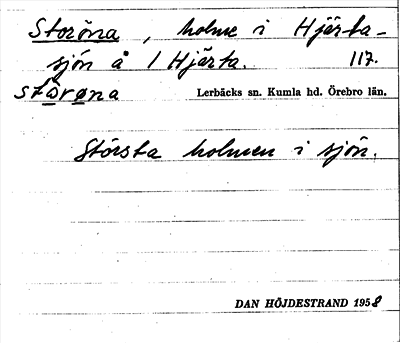 Storöna, holme i Hjärta-
sjön å 1 Hjärta. 117.
storøna Lerbäcks sn. Kumla hd. Örebro län.
Största holmen i sjön.
DAN HÖJDESTRAND 1958